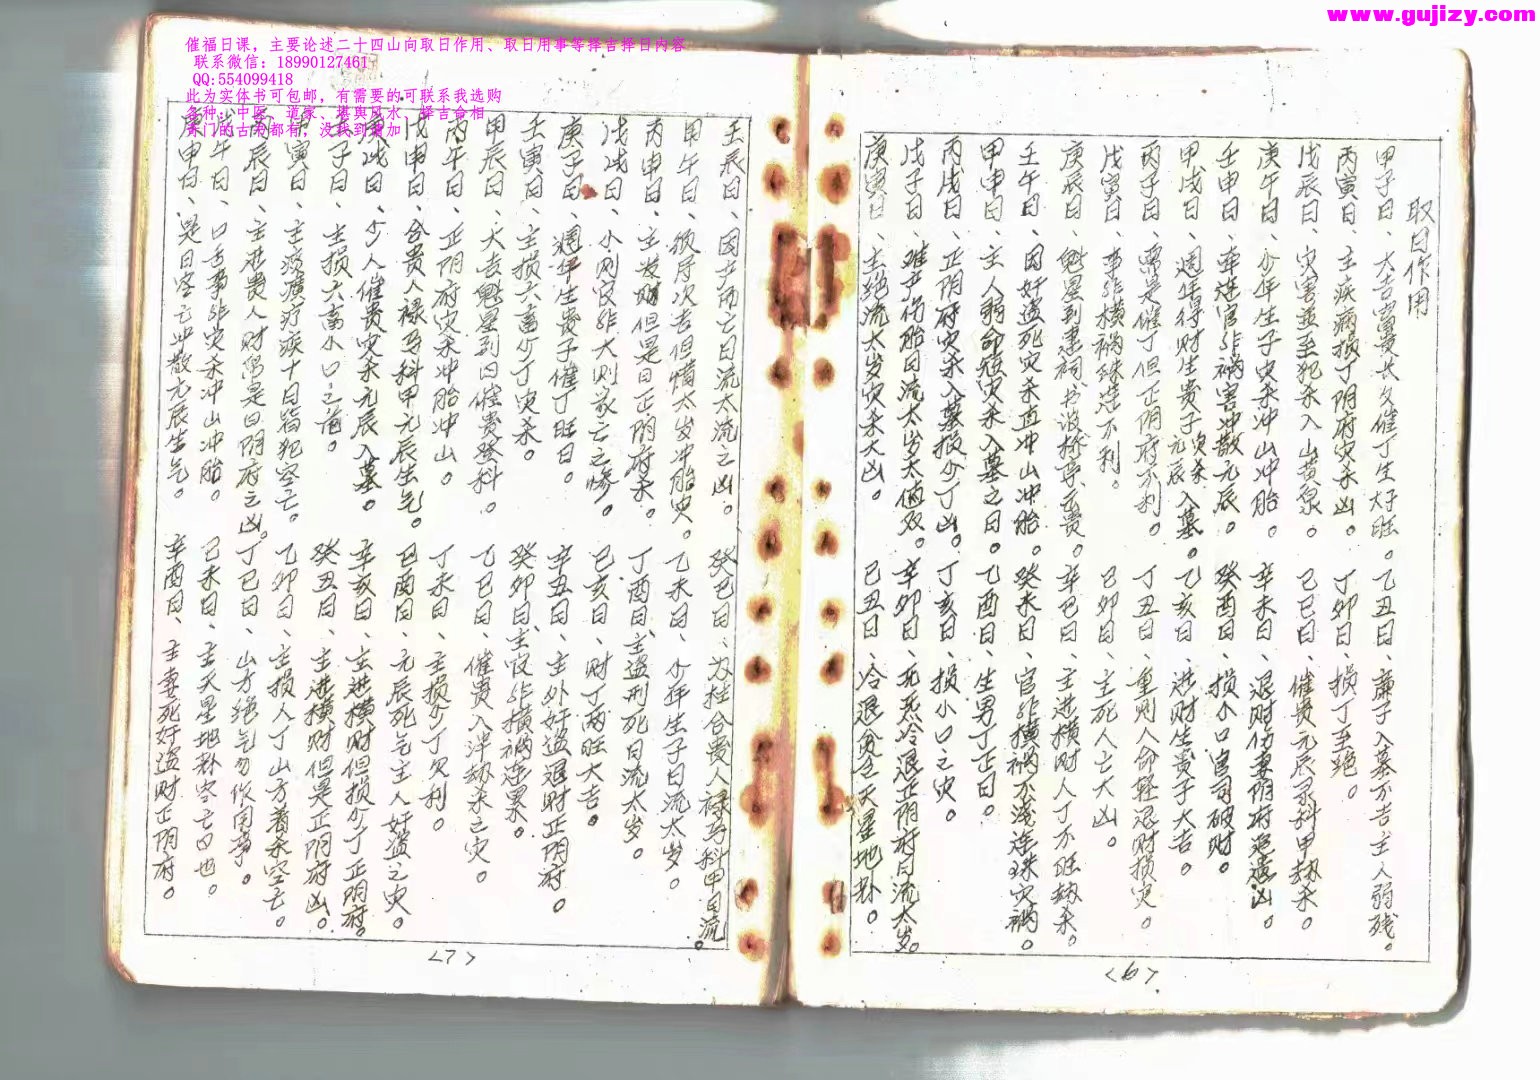 www.gujizy.com
催福日课，主要论述二十四山向取日作用、取日用事等择吉择日内容
联系微信：18990127461
QQ:554099418
此为实体书可包邮，有需要的可联系我选购
各种：中医、道家、堪舆风水、择吉命相
奇门的古书都有，没找到请加
取日作用
甲子日、大吉富贵长久催丁生财旺。乙丑日、廉子入墓不吉主人弱残。
丙寅日、主疾病损丁阴府灾杀凶。丁卯日、损丁至绝。
戊辰日、灾害並至犯杀入山黄泉。己巳日、催贵元辰录科甲劫杀。
庚午日、少年生子灾杀冲山冲胎。辛未日、退财伤妻阴府凶。
壬申日、牵连官非祸害冲散元辰。癸酉日、损小口官司破财。
甲戌日、週年得财生贵子灾杀元辰入墓。乙亥日、进财生贵子大吉。
丙子日、需是催丁但正阴府不利。丁丑日、重则人命轻退财损灾。
戊寅日、事非横祸珠连不利。己卯日、主死人亡大凶。
庚辰日、魁星到。辛巳日、主进横财人丁不旺劫杀。
壬午日、因奸盗死灾杀直冲山冲胎。癸未日、官非横祸不浅连珠灾祸。
甲申日、主人弱命短灾杀入墓之日。乙酉日、生男丁正日。
丙戌日、正阴府灾杀入墓报少丁凶。丁亥日、损小口之灾。
戊子日、难产伤胎日流太岁太值双。辛卯日、死冷退正阴府日流太岁。
庚寅日、主绝流太岁灾杀大凶。己丑日、冷退天罡地卦。
<6>
壬辰日、因产而亡日流太流之凶。癸巳日、为挂合贵人禄马科甲日流。
甲午日、彼序次吉但惜太岁冲胎灾。乙未日、少年生子日流太岁。
丙申日、主发财但是日正阴府杀。丁酉日、主盗刑死日流太岁。
戊戌日、小则官非大则家亡之惨。己亥日、财丁两旺大吉。
庚子日、週年生贵子催丁旺日。辛丑日、主外奸盗退财正阴府。
壬寅日、主损六畜少丁灾杀。癸卯日、主官非横祸连累。
甲辰日、大吉魁星到旧催贵登科。乙巳日、催贵入泮劫杀之灾。
丙午日、正阴府灾杀冲胎冲山。丁未日、主损少丁欠利。
戊申日、合贵人禄马科甲元辰生气。己酉日、元辰死气主人奸盗之灾。
庚戌日、少人催贵灾杀元辰入墓。辛亥日、主进横财但损少丁正阴府。
壬子日、主损六畜小口之。癸丑日、主进横财但是正阴府凶。
甲寅日、主痰痨疗疾十日皆犯空亡。乙卯日、主损人丁山方着杀空亡。
丙辰日、主进贵人财帛是日阴府之凶。丁巳日、山方绝气勿作用事。
戊午日、口舌事非灾杀冲山冲胎。己未日、主天星地卦空亡日也。
庚申日、是日空亡冲散元辰生气。辛酉日、主妻死奸盗财正阴府。
<7>